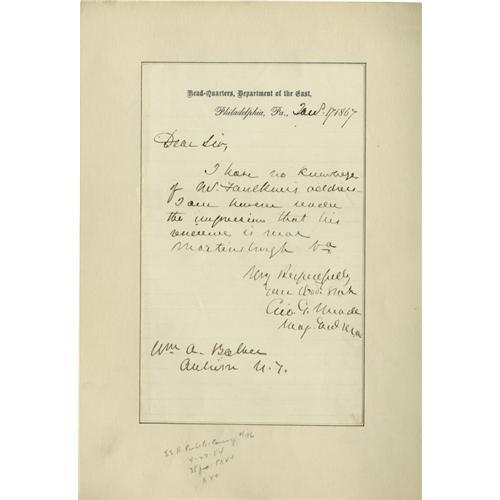 Head-Quarters, Department of the East,
Philadelphia, Pa., Jany. 17 1867
Dear Sir,
I have no knowledge
of Mr. Faulkner's address
I am however under
the impression that his
residence is near
Martinsburgh Va
Very Respectfully
Your Obdt. Servt
Geo. G. Meade
Maj. Genl. U.S.A.
Wm A. Baker
Auburn N.Y.